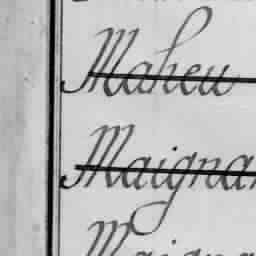 Maheu
Maigna